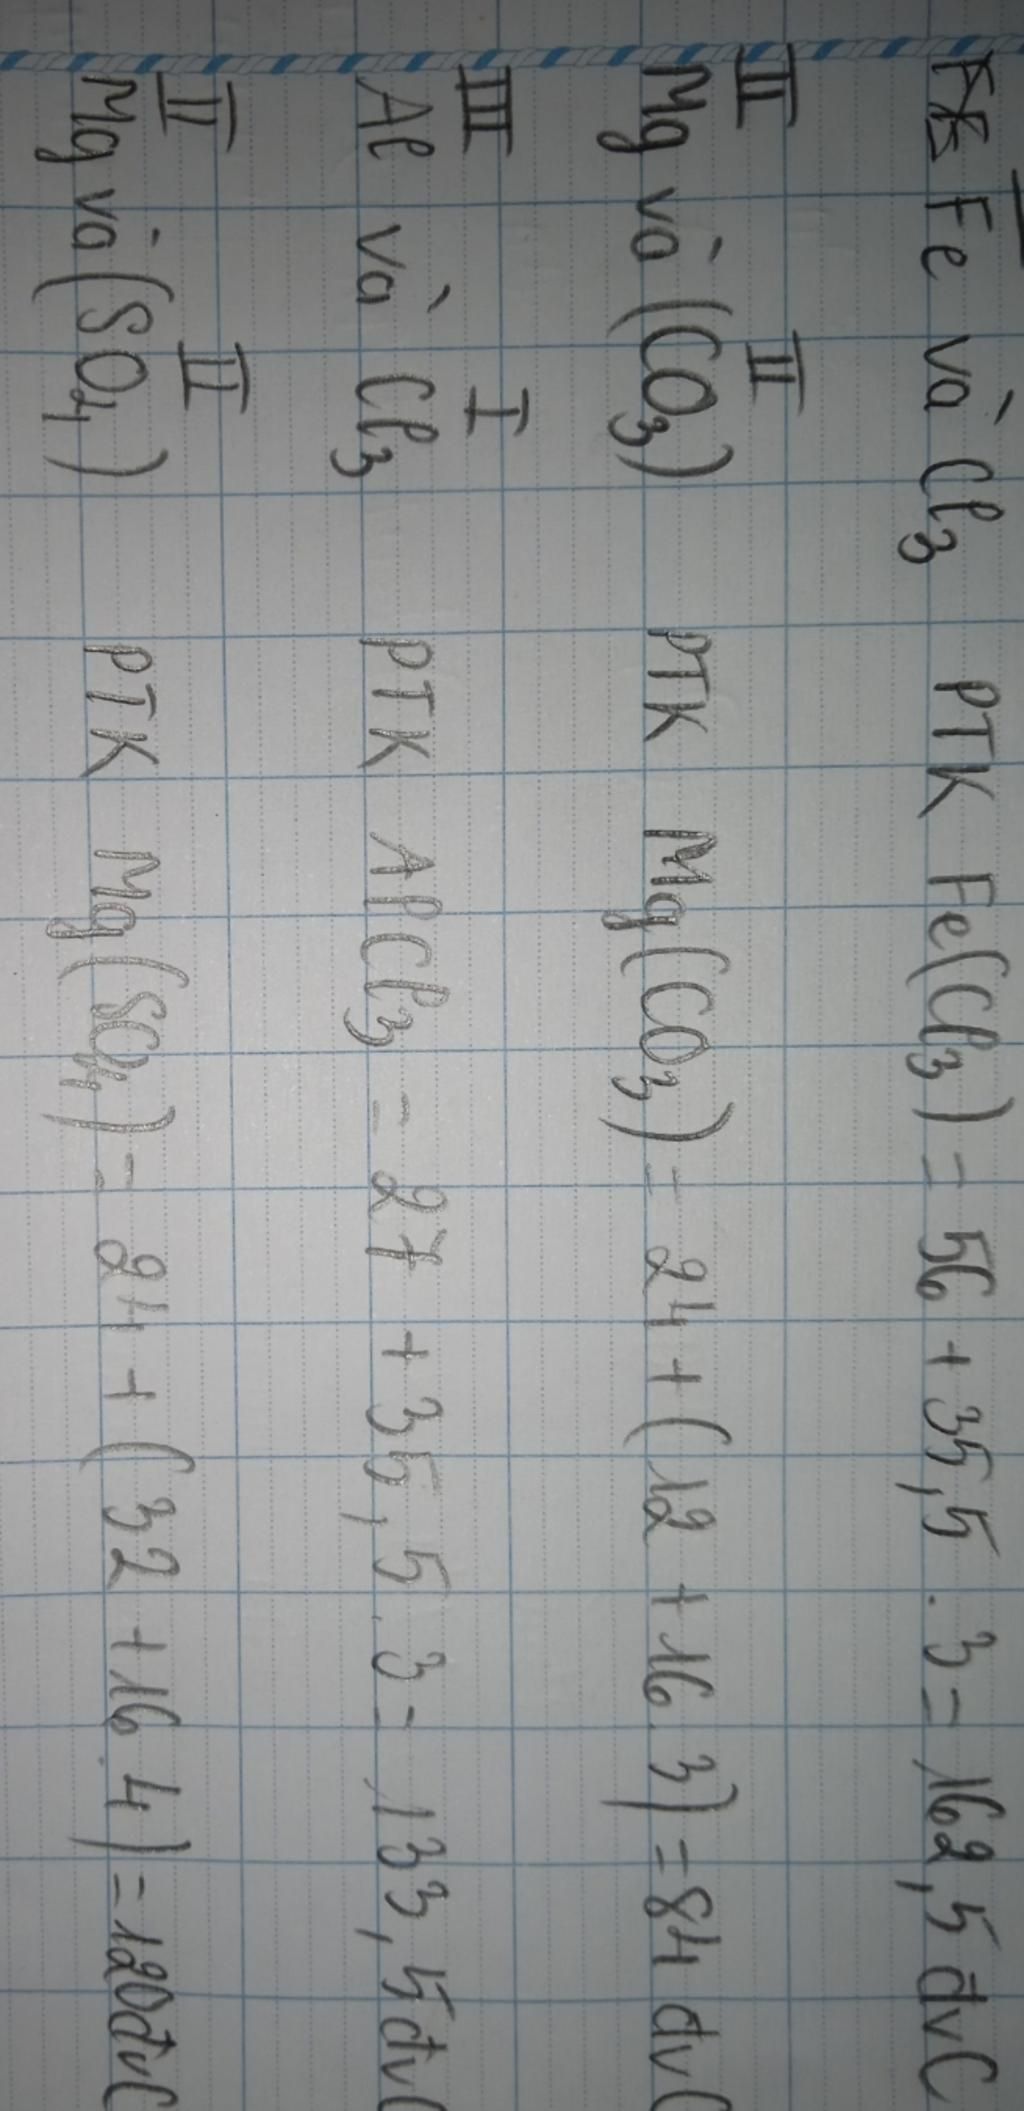 Fe và Cl3 PTK Fe(Cl3) = 56 + 35,5 . 3 = 162,5 đvC
II II
Mg và (CO3) PTK Mg(CO3) = 24 + (12 + 16.3) = 84 đvC
III I
Al và Cl3 PTK AlCl3 = 27 + 35,5.3 = 133,5 đvC
II II
Mg và (SO4) PTK Mg(SO4) = 24 + (32 + 16.4) = 120 đvC